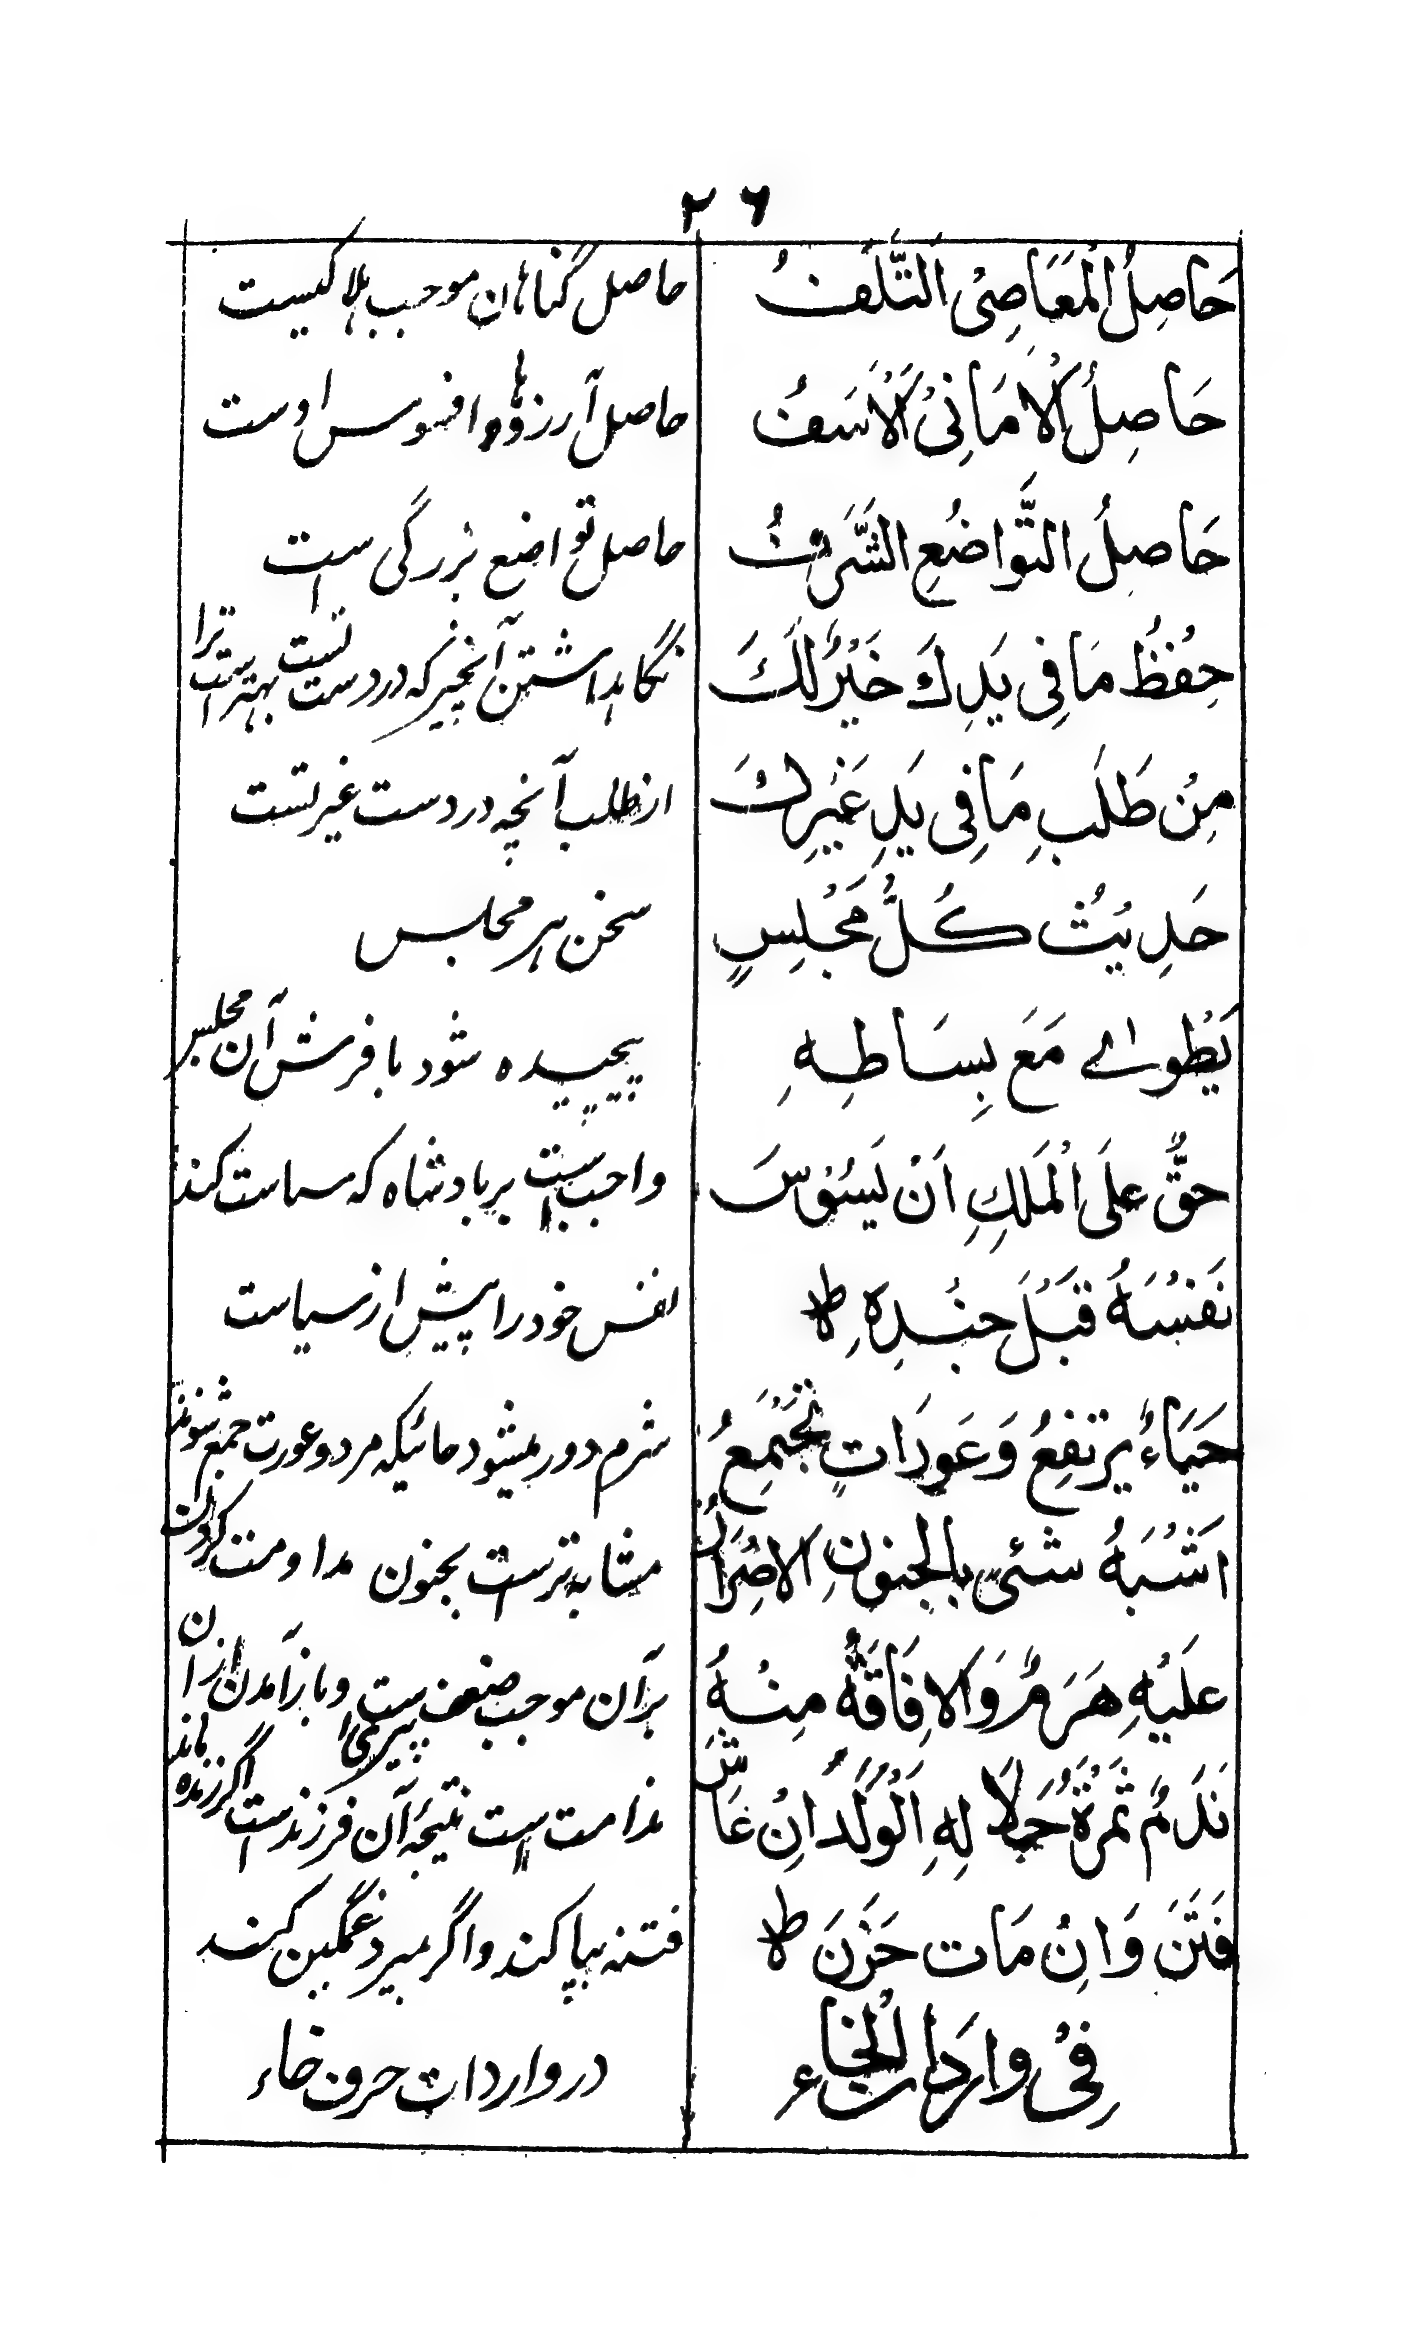 ۲۶
حَاصِلُ الْمَعَاصِیْ التَّلَفُ
حاصل گناهان موجب هلاکیست
حَاصِلُ الْامَانِیْ الْاَسَفُ
حاصل آرزوها افسوس اوست
حَاصِلُ التَّوَاضُعِ الشَّرَفُ
حاصل تواضع بزرگی است
حِفْظُ مَا فِی یَدِكَ خَیْرٌ لَكَ
نگاهداشتن آنچیز که در دست تست بهتر است ترا
مِنْ طَلَبِ مَا فِی یَدِ غَیْرِكَ
از طلب آنچه در دست غیر تست
حَدِیْثُ كُلِّ مَجْلِسٍ
سخن هر مجلس
یَطْوٰے مَعَ بِسَاطِهِ
پیچیده شود با فرش آن مجلس
حَقٌّ عَلَی الْمَلِكِ اَنْ یَسُوْسَ
واجب است بر بادشاه که سیاست کند
نَفْسَهُ قَبْلَ جُنْدِهِ ط
نفس خود را پیش از سیاست
حَیَاءٌ یَرْتَفِعُ وَعَورَاتٍ تَجْتَمِعُ
شرم دور میشود حائیکه مرد و عورت جمع شوند
اَشْبَهُ شَئیٍ بِالجنونِ الاِصْرَارُ
مشابه ترست بجنون مداومت کردن
عَلَیْهِ هَرَمٌ وَالاِفَاقَةُ مِنْهُ
بر آن موجب ضعف پیری است و باز آمدن از آن
نَدَمٌ ثَمْرَةُ حَبَلا لِهِ الْوَلَدُ اِنْ عَاشَ
ندامت است نتیجه آن فرزندست اگر زنده ماند
فَتَنَ وَاِنْ مَات حَزَنَ ط
فتنه بپا کند و اگر میرد غمگین کند
فِیْ وَارِدَاتِ الْخَاء
در واردات حرف خاء